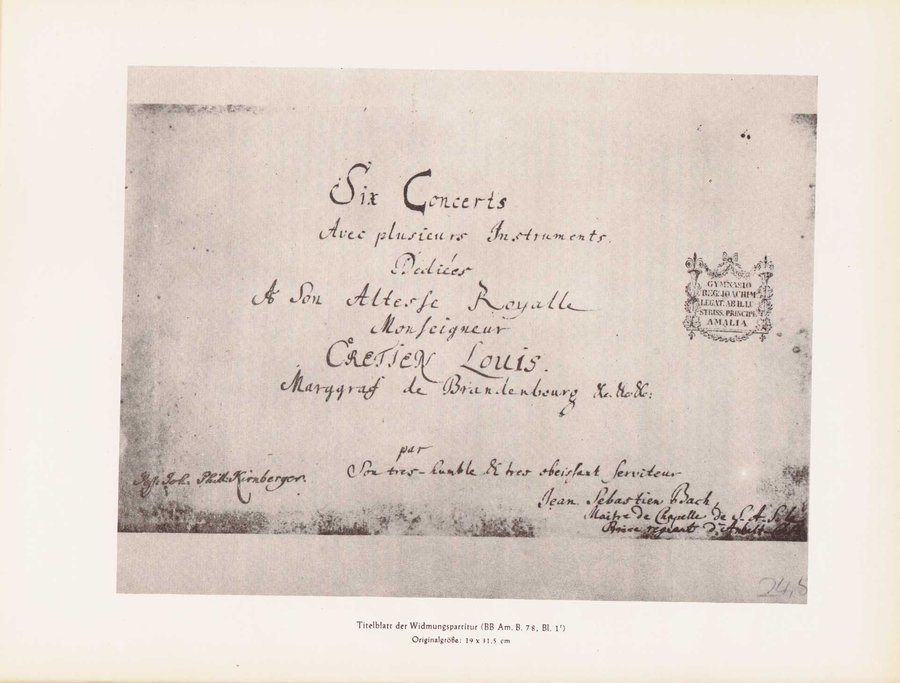 Six Concerts
Avec plusieurs Instruments.
Dediées
A Son Altesse Royalle
Monseigneur
CRETIEN LOUIS.
Marggraf de Brandenbourg &c. &c. &c:
par
Son tres-humble & tres obeissant serviteur
Jean Sebastien Bach,
Maitre de Chapelle de S. A. S. le
Prince regnant d'Anhalt
Joh. Phil. Kirnberger.
GYMNASIO
REG. JOACHIM.
LEGAT. AB ILLU
STRISS. PRINCIPE
AMALIA
24,5
Titelblatt der Widmungspartitur (BB Am. B. 78, Bl. 1r)
Originalgröße: 19 x 31,5 cm